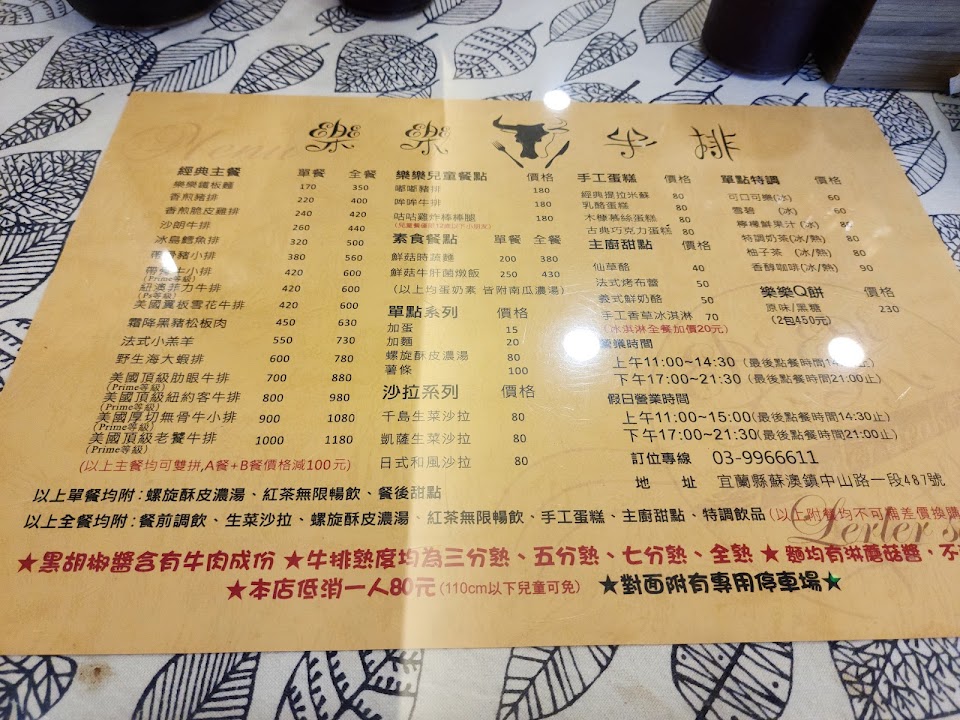 Menu
樂 樂 牛 排
經典主餐 單餐 全餐
樂樂鐵板麵 170 350
香煎豬排 220 400
香煎脆皮雞排 240 420
沙朗牛排 260 440
冰島鱈魚排 320 500
帶骨豬小排 380 560
帶骨牛小排 420 600
(Prime等級)
紐澳菲力牛排 420 600
(Ps等級)
美國翼板雪花牛排 420 600
霜降黑豬松板肉 450 630
法式小羔羊 550 730
野生海大蝦排 600 780
美國頂級肋眼牛排 700 880
(Prime等級)
美國頂級紐約客牛排 800 980
(Prime等級)
美國厚切無骨牛小排 900 1080
(Prime等級)
美國頂級老饕牛排 1000 1180
(Prime等級)
(以上主餐均可雙拼,A餐+B餐價格減100元)
樂樂兒童餐點 價格
嘟嘟豬排 180
哞哞牛排
咕咕雞炸棒棒腿 180
素食餐點 單餐 全餐
鮮菇時蔬麵 200 380
鮮菇牛肝菌燉飯 250 430
(以上均蛋奶素 皆附南瓜濃湯)
單點系列 價格
加蛋 15
加麵 20
螺旋酥皮濃湯 80
薯條 100
沙拉系列 價格
千島生菜沙拉 80
凱薩生菜沙拉 80
日式和風沙拉 80
手工蛋糕 價格
經典提拉米蘇 80
乳酪蛋糕 80
木槺慕絲蛋糕 80
古典巧克力蛋糕 80
主廚甜點 價格
仙草酪 40
法式烤布蕾 50
義式鮮奶酪 50
手工香草冰淇淋 70
(冰淇淋全餐加價20元)
單點特調 價格
可口可樂(冰) 60
雪碧 (冰) 60
檸檬鮮果汁 (冰) 80
特調奶茶(冰/熱) 80
柚子茶 (冰/熱) 80
香醇咖啡(冰/熱) 90
樂樂Q餅 價格
原味/黑糖 230
(2包450元)
時間
上午11:00~14:30 (最後點餐時間14
下午17:00~21:30 (最後點餐時間21:00止)
假日營業時間
上午11:00~15:00(最後點餐時間14:30止)
下午17:00~21:30(最後點餐時間21:00止)
訂位專線 03-9966611
地 址 宜蘭縣蘇澳鎮中山路一段487號
以上單餐均附:螺旋酥皮濃湯、紅茶無限暢飲、餐後甜點
以上全餐均附:餐前調飲、生菜沙拉、螺旋酥皮濃湯、紅茶無限暢飲、手工蛋糕、主廚甜點、特調飲品(以上附餐均不可補差價換購
Lerler s
★黑胡椒醬含有牛肉成份 ★牛排熟度均為三分熟、五分熟、七分熟、全熟 ★ 麵均有淋蘑菇醬，不
★本店低消一人80元(110cm以下兒童可免) ★對面附有專用停車場★